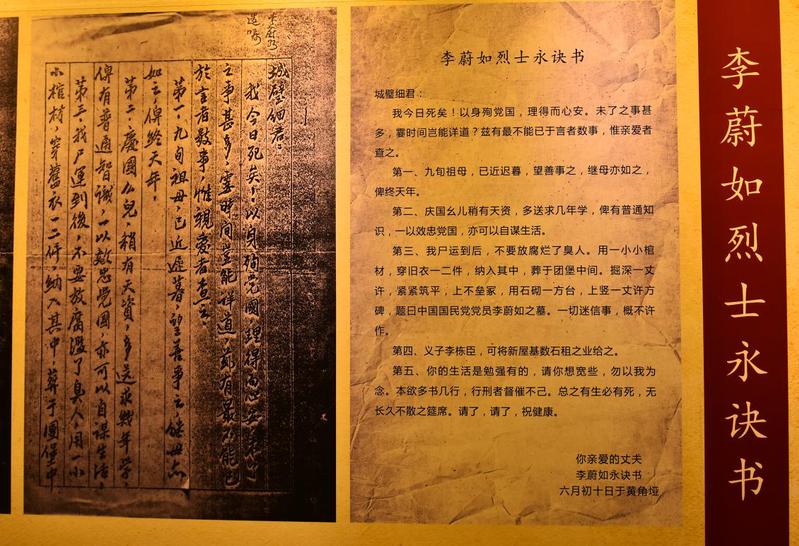 城璧細君：
我今日死矣，以身殉黨國，理得而心安。未了
之事甚多，霎時间豈能详道，兹有最不能已
於言者数事，惟親爱者查之。
第一，九旬祖母，已近遲暮，望善事之，继母亦
如之，俾终天年。
第二，慶國么兒，稍有天資，多送求幾年学，
俾有普通智識，一以效忠黨國，亦可以自謀生活，
第三，我尸運到後，不要放腐濫了臭人，用一小
小棺材，穿舊衣一二件，納入其中，葬于團堡中
李蔚如烈士永诀书
城璧细君：
我今日死矣！以身殉党国，理得而心安。未了之事甚
多，霎时间岂能详道？兹有最不能已于言者数事，惟亲爱者
查之。
第一，九旬祖母，已近迟暮，望善事之，继母亦如之，
俾终天年。
第二，庆国幺儿稍有天资，多送求几年学，俾有普通知
识，一以效忠党国，亦可以自谋生活。
第三，我尸运到后，不要放腐烂了臭人。用一小小棺
材，穿旧衣一二件，纳入其中，葬于团堡中间。掘深一丈
许，紧紧筑平，上不垒冢，用石砌一方台，上竖一丈许方
碑，题曰中国国民党党员李蔚如之墓。一切迷信事，概不许
作。
第四、义子李栋臣，可将新屋基数石租之业给之。
第五、你的生活是勉强有的，请你想宽些，勿以我为
念。本欲多书几行，行刑者督催不已。总之有生必有死，无
长久不散之筵席。请了，请了，祝健康。
你亲爱的丈夫
李蔚如永诀书
六月初十日于黄角垭
李蔚如烈士永诀书